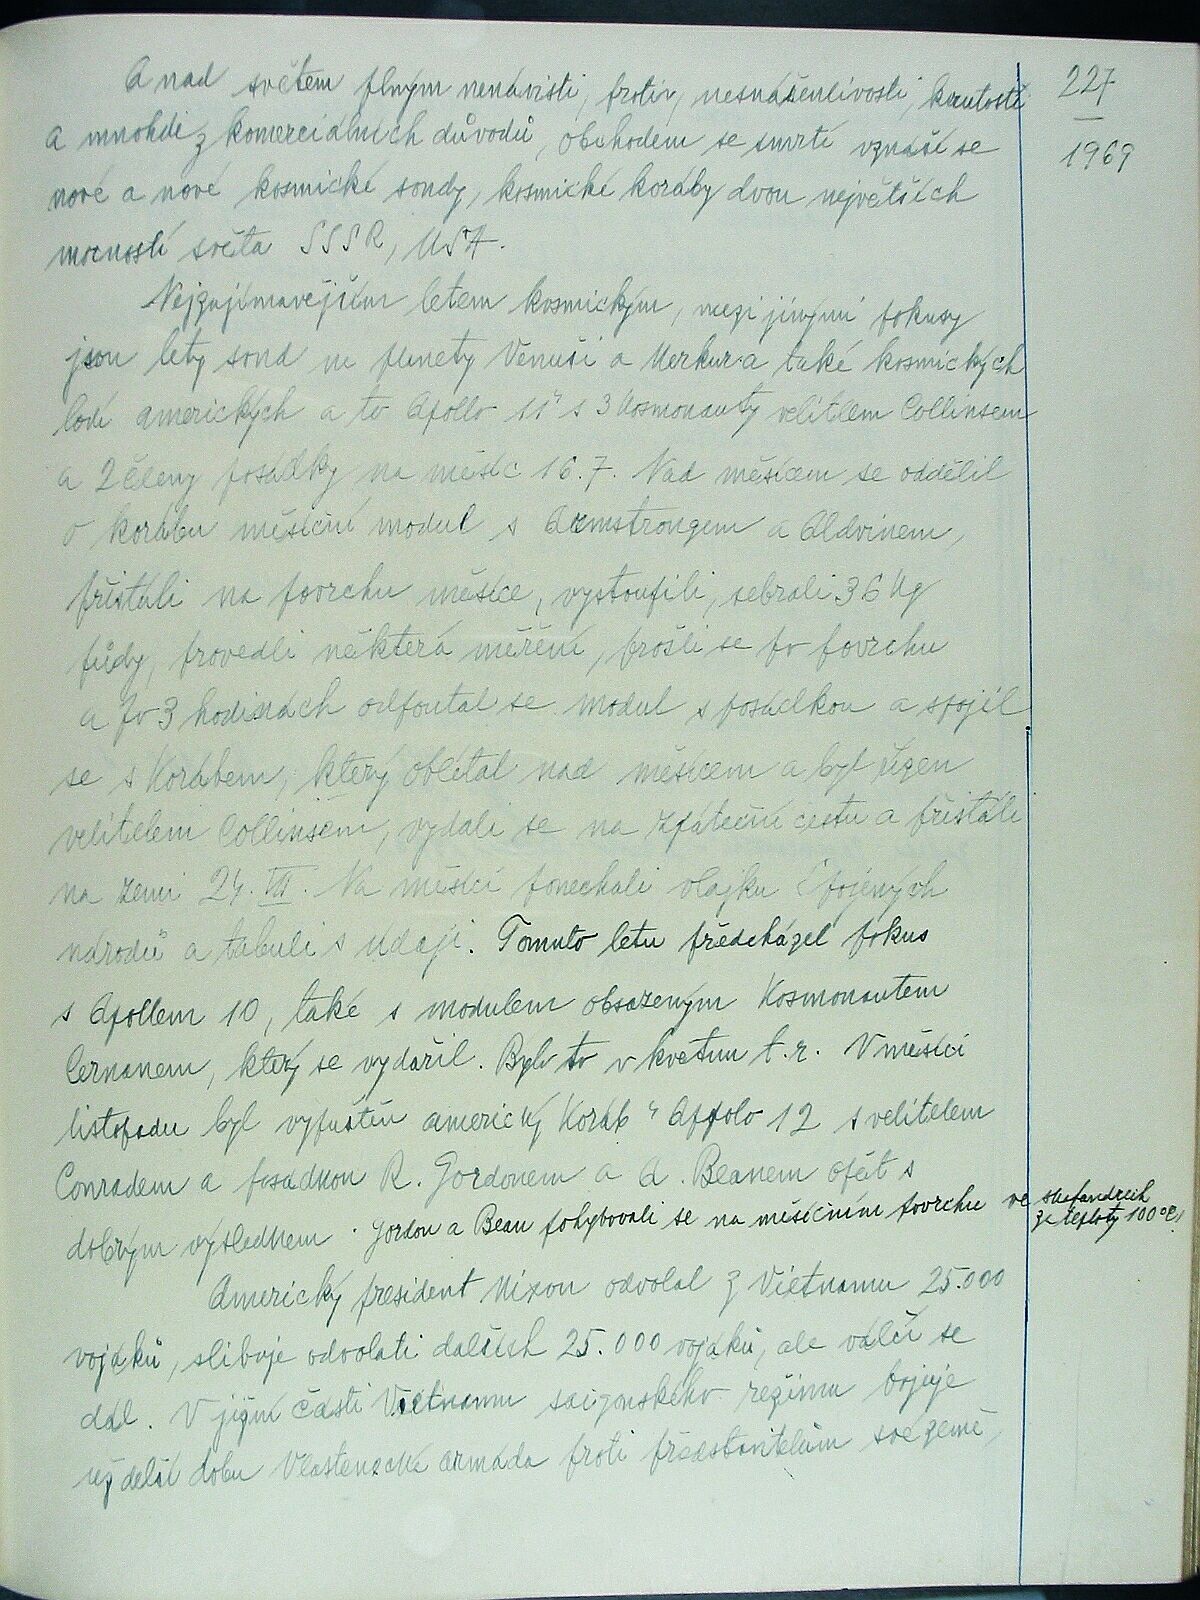 227
1969
A nad světem plným nenávisti, protiv, nesnášenlivosti, krutosti
a mnohdi z komerciálních důvodů, obchodem se smrtí vznáší se
nové a nové kosmické sondy, kosmické koráby dvou největších
mocností světa SSSR, USA.
Nejzajímavejším letem kosmickým, mezi jinými pokusy
jsou lety sond na planety Venuši a Merkur a také kosmických
lodí amerických a to Apollo 11" s 3 kosmonauty velitelem Collinsem
a 2 členy posádky na měsíc 16.7. Nad měsícem se oddělil
o korábu měsíční modul s Armstrongem a Aldvinem,
přistáli na povrchu měsíce, vystoupili, sebrali 36 kg
půdy, provedli některá měření, prošli se po povrchu
a po 3 hodinách odpoutal se modul s posádkou a spojil
se s korábem, který oblétal nad měsícem a byl řízen
velitelem Collinsem, vydali se na zpáteční cestu a přistáli
na zemi 24. VII. Na měsíci ponechali vlajku Spojených
národů a tabuli s údaji. Tomuto letu předcházel pokus
s Apollem 10, také s modulem obsazeným kosmonautem
Cernanem, který se vydařil. Bylo to v květnu t.r. V měsíci
listopadu byl vypuštěn americký koráb "Appolo 12 s velitelem
Conradem a posádkou R. Gordonem a A. Beanem opět s
dobrým výsledkem. Gordon a Bean pohybovali se na měsíčním povrchu ve skafandrech
za teploty 100°C,
Americký president Nixon odvolal z Vietnamu 25.000
vojáků, slibuje odvolati dalších 25.000 vojáků, ale válčí se
dál. V jižní části Vietnamu saigonského režimu bojuje
už delší dobu vlastenecká armáda proti představitelům své země,